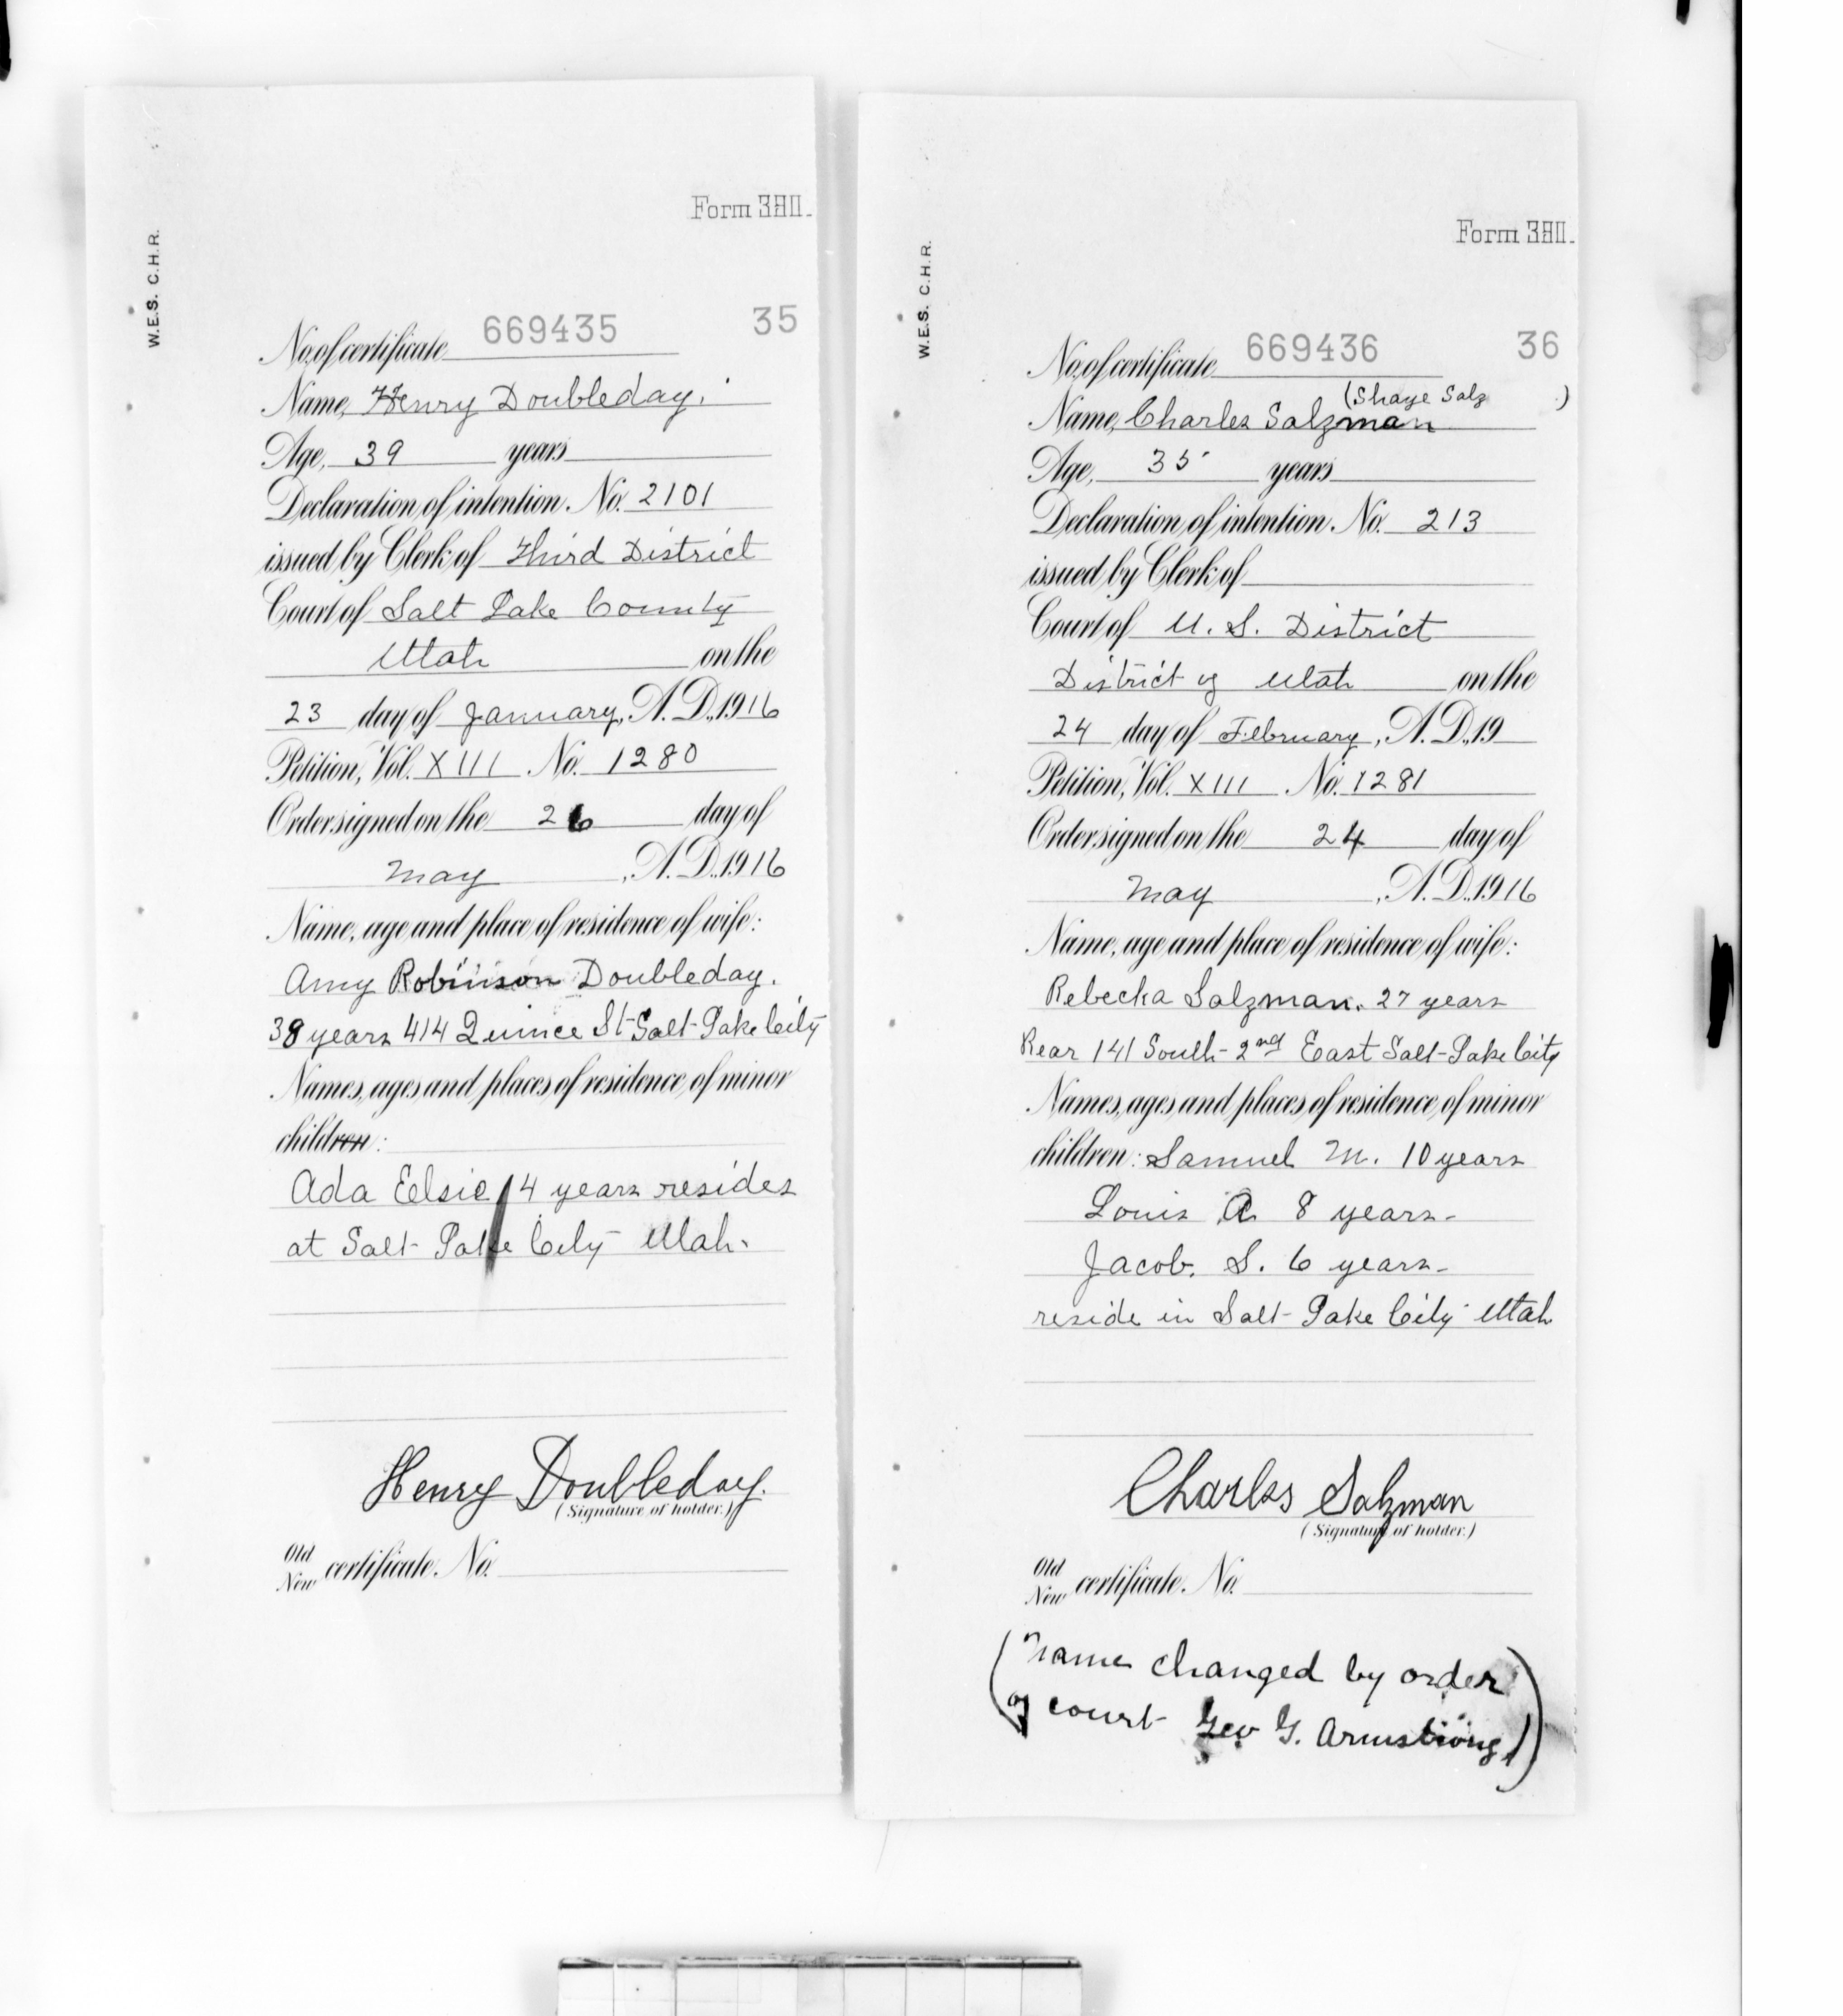 Form 380.
W.E.S. C.H.R.
No. of certificate 669435 35
Name, Henry Doubleday.
Age, 39 years
Declaration of intention. No. 2101
issued by Clerk of Third District
Court of Salt Lake County
Utah on the
23 day of January, A.D. 1916
Petition, Vol. XIII No. 1280
Order signed on the 26 day of
May, A.D. 1916
Name, age and place of residence of wife:
Amy Robinson Doubleday.
38 years 414 Quince St Salt Lake City
Names, ages, and places of residence, of minor
children:
Ada Elsie 14 years resides
at Salt Lake City Utah.
Henry Doubleday.
(Signature of holder.)
Old
New certificate. No.
Form 380.
W.E.S. C.H.R.
No. of certificate 669436 36
(Shaye Salz )
Name, Charles Salzman
Age, 35 years
Declaration of intention. No. 213
issued by Clerk of
Court of U. S. District
District of Utah on the
24 day of February, A.D. 19
Petition, Vol. XIII No. 1281
Order signed on the 24 day of
May, A.D. 1916
Name, age and place of residence of wife:
Rebecka Salzman. 27 years
Rear 141 South 2nd East Salt Lake City
Names, ages, and places of residence, of minor
children: Samuel M. 10 years
Louis A 8 years
Jacob. S. 6 years
reside in Salt Lake City Utah
Charles Salzman
(Signature of holder.)
Old
New certificate. No.
(Name changed by order
of court Geo G. Armstrong)